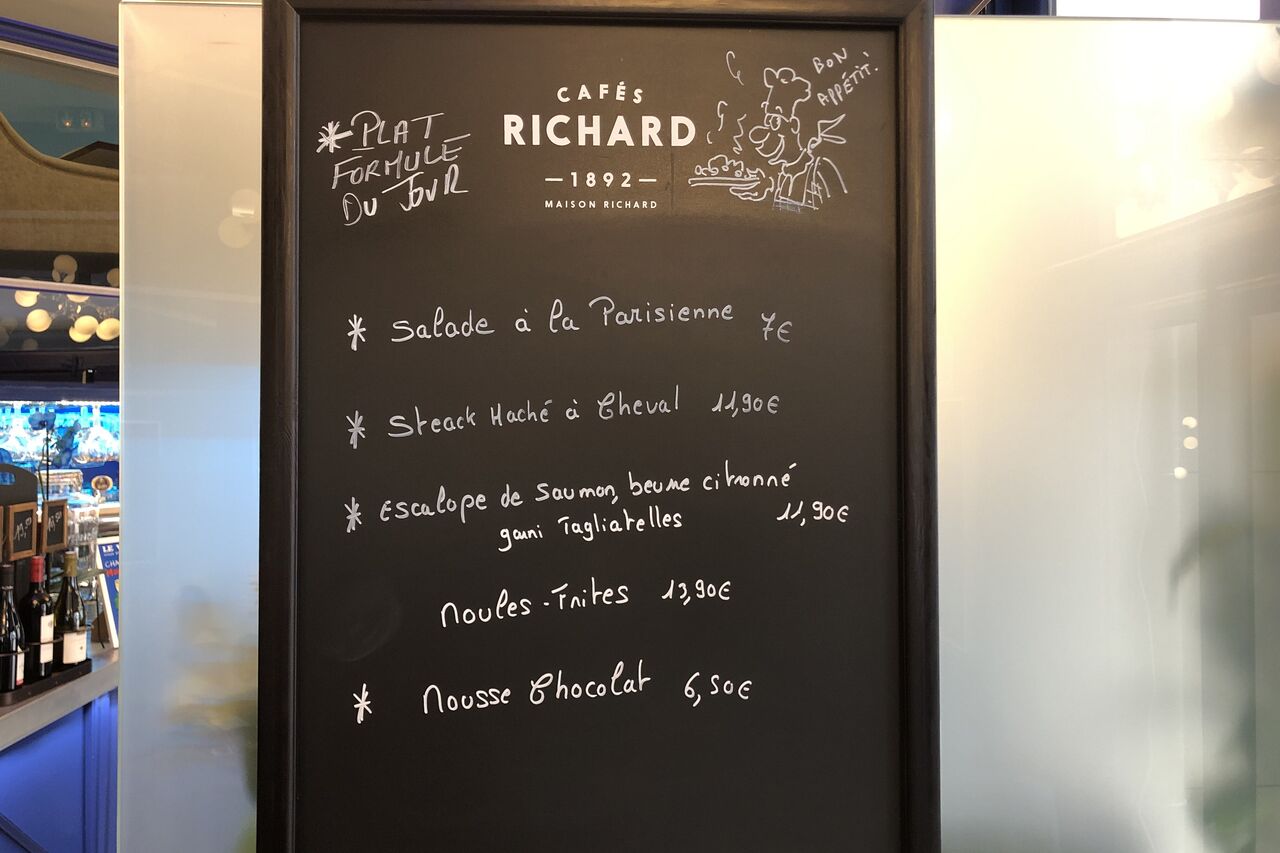 CAFÉS
RICHARD
—1892—
MAISON RICHARD
BON
APPÉTIT!
*PLAT
FORMULE
DU JOUR
* Salade à la Parisienne 7€
* Steack Haché à Cheval 11,90€
* Escalope de Saumon, beurre citronné
garni Tagliatelles 11,90€
Moules-Frites 13,90€
* Mousse Chocolat 6,50€